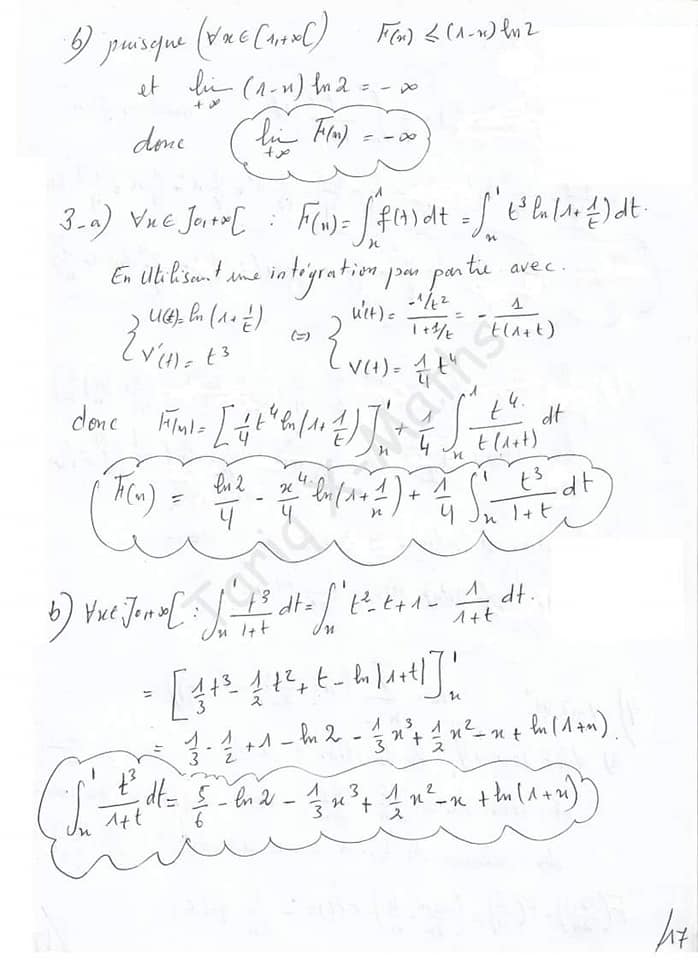 b) puisque (∀x∈[1,+∞[) F(x) ≤ (1-x) ln2
et lim_{+∞} (1-x) ln2 = -∞
donc lim_{+∞} F(x) = -∞
3-a) ∀x∈]0,+∞[ : F(x) = ∫_x^1 f(t) dt = ∫_x^1 t³ ln(1+1/t) dt.
En utilisant une intégration par partie avec.
{ U(t) = ln(1+1/t) (=) { U'(t) = (-1/t²)/(1+1/t) = - 1/(t(1+t))
{ V'(t) = t³ { V(t) = 1/4 t⁴
donc F(x) = [1/4 t⁴ ln(1+1/t)]_x^1 + 1/4 ∫_x^1 t⁴/(t(1+t)) dt
F(x) = ln2/4 - x⁴/4 ln(1+1/x) + 1/4 ∫_x^1 t³/(1+t) dt
b) ∀x∈]0,+∞[ : ∫_x^1 t³/(1+t) dt = ∫_x^1 t²-t+1 - 1/(1+t) dt.
= [1/3 t³ - 1/2 t² + t - ln|1+t|]_x^1
= 1/3 - 1/2 + 1 - ln2 - 1/3 x³ + 1/2 x² - x + ln(1+x).
∫_x^1 t³/(1+t) dt = 5/6 - ln2 - 1/3 x³ + 1/2 x² - x + ln(1+x)
/17
Tariq X-Maths